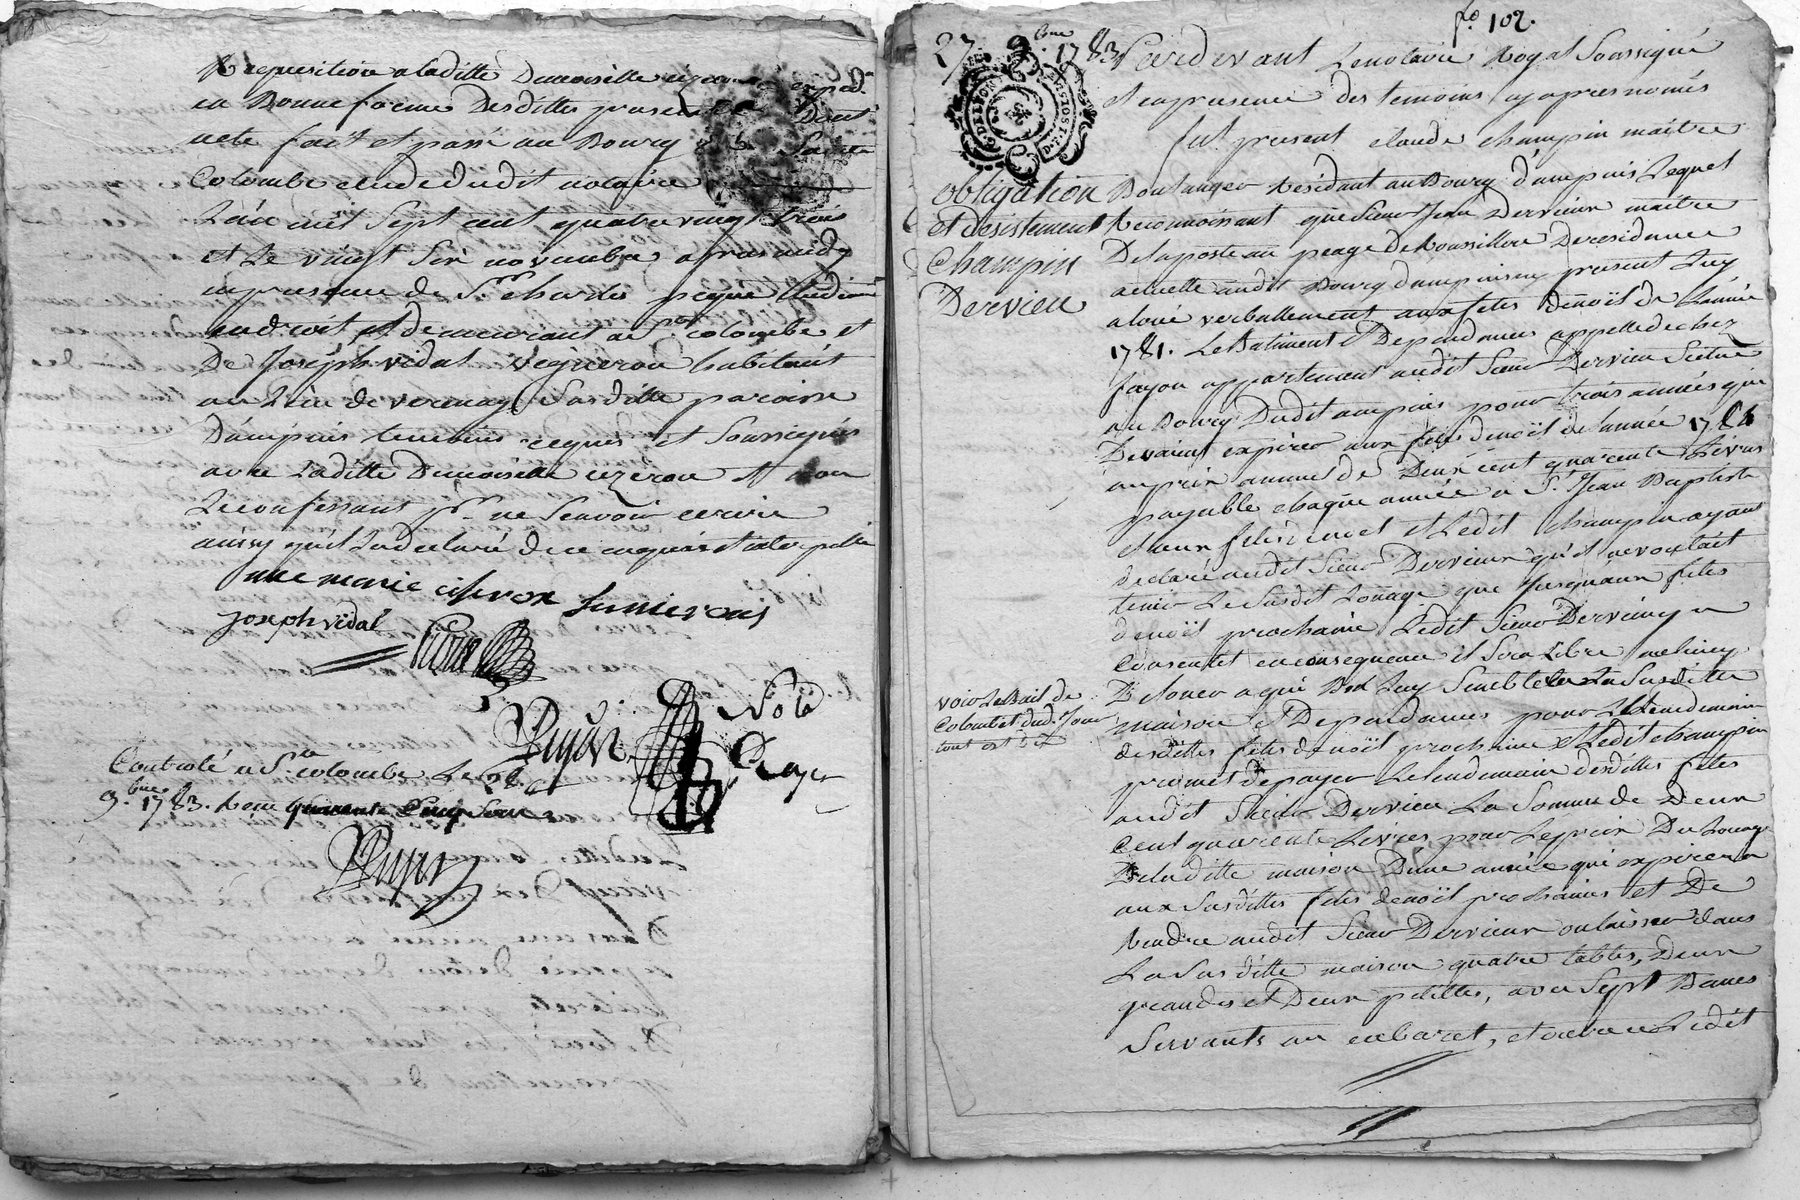 Requisition a laditte Demoiselle cizeron exped.
en Bonne forme Desdittes presentes Dont
acte fait et passé au Bourg de Sainte
Colombe etude dudit notaire
L'an mil sept cent quatre vingt trois
et Le vingt six novembre apres midy
en presence de Sr. charles
en droit et demeurant a Ste colombe et
De Joseph vidal vigneron habitant
au Lieu de verenay Susditte paroisse
D'ampuis temoins requis et Soussignés
avec Laditte Demoiselle cizeron et non
Le confessant pr. ne Scavoir ecrire
ainsy qu'il La declaré de ce enquis et interpellé
marie
joseph vidal
Nore
Royer
Controlé a Ste colombe Le 26
9.bre 1783. Recu quarante Cinq Sous
fo. 102.
27 9.bre 1783
Pardevant Le notaire Royal Soussigné
et en presence des temoins cy apres només
fut present claude champin maitre
obligation
et desistement
Champin
Dervieu
Boulanger Résidant au Bourg d'ampuis Lequel
Reconnoissant que Sieur Jean Dervieux maitre
De la poste au peage de Roussillon De residance
actuelle audit Bourg d'ampuis cy present Luy
a loué verballement aux fetes de noël de L'année
1781. Le Batiment et Dependances appellé de chez
fayon appartenant audit Sieur Dervieu Scitué
au Bourg Dudit ampuis pour trois années qui
Devaient expirer aux fetes de noël de L'année 1784
au prix annuel de Deux cent quarente Livres
payable chaque année a St. Jean Baptiste
et aux fetes de noel et Ledit Champin ayant
declaré audit Sieur Dervieux qu'il ne voulait
tenir Le Susdit Louage que Jusqu'aux fetes
de noël prochaine Ledit Sieur Dervieux y a
Consentit en consequence il Sera Libre a celuy cy
De louer a qui Bon Luy Semblera La Susditte
voir Le Bail de
Colombet dud. Jour
maison et Dependances pour Le Lendemain
desdittes fetes de noël prochaine et Ledit champin
promet de payer Le lendemain desdittes fetes
audit Sieur Dervieu La Somme de Deux
Cent quarente Livres pour Le prix Du Louage
De laditte maison D'une année qui expirera
aux Susdittes fetes de noël prochaines et De
Rendre audit Sieur Dervieux ou laisser dans
La Susditte maison quatre tables, Deux
grandes et Deux petittes, avec Sept Bancs
Servants au cabaret, et outre ce Ledit